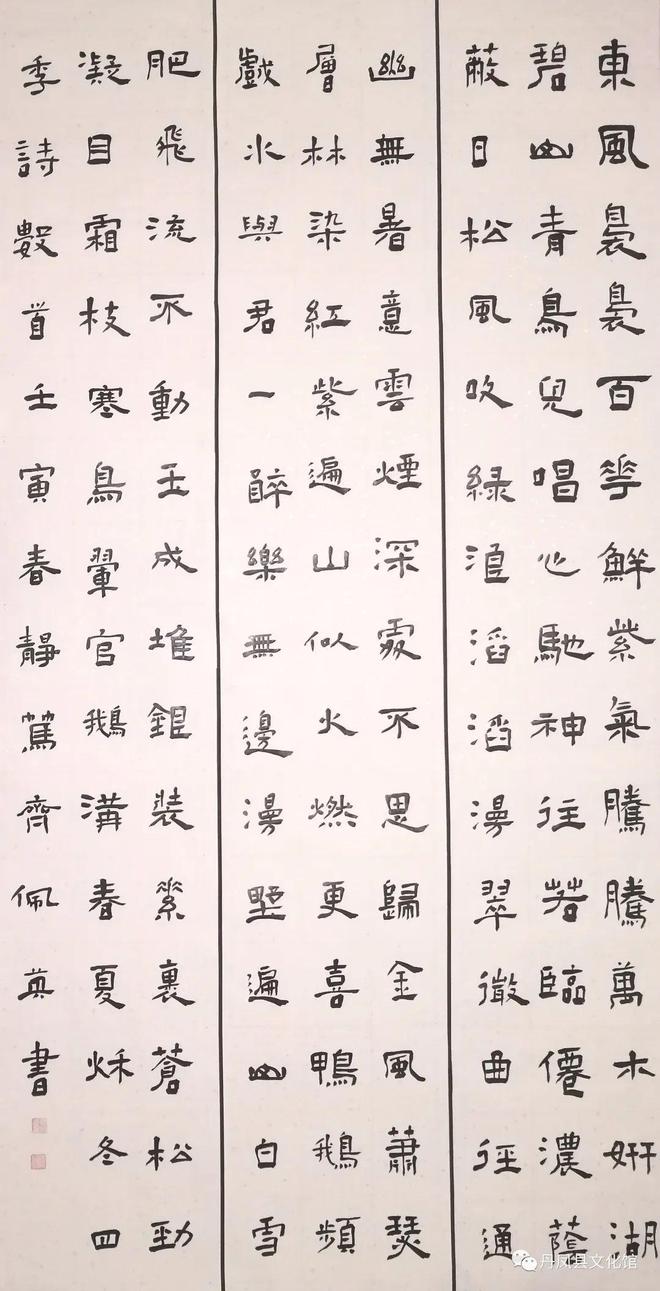 東風裊裊百華鮮紫氣騰騰萬木妍湖
碧山青鳥兒唱心馳神往若臨僊濃蔭
蔽日松風吹綠浪滔滔漫翠微曲徑通
幽無暑意雲煙深處不思歸金風蕭瑟
層林染紅紫遍山似火燃更喜鴨鵝頻
戲水與君一醉樂無邊漫野遍山白雪
肥飛流不動玉成堆銀裝素裹蒼松勁
凝目霜枝寒鳥翬官鵝溝春夏秋冬四
季詩數首壬寅春靜篤齊佩英書
丹凤县文化馆